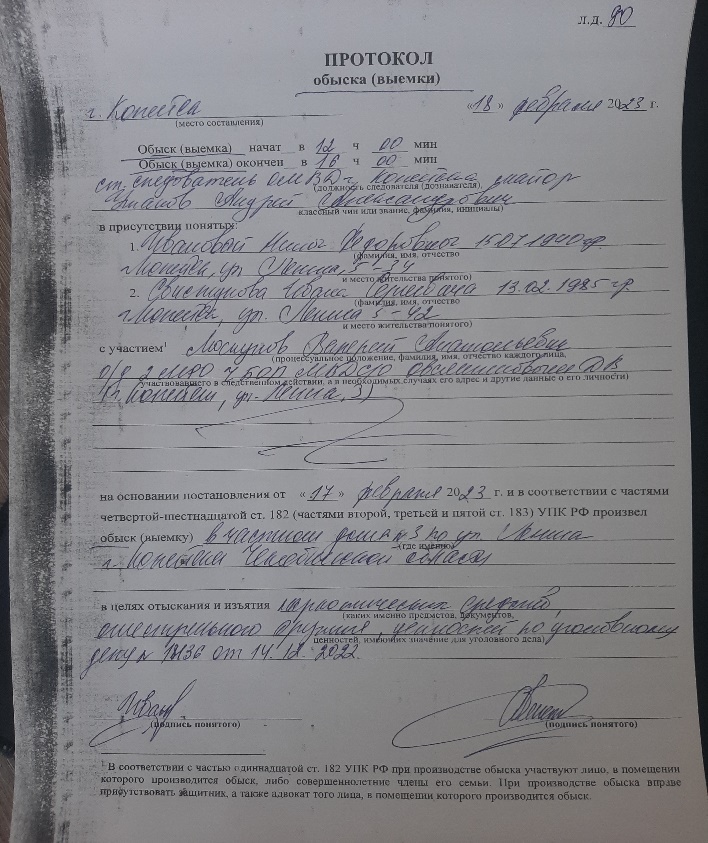 Л.Д. 90
ПРОТОКОЛ
обыска (выемки)
г. Копейск «18» февраля 2023 г.
(место составления)
Обыск (выемка) начат в 12 ч 00 мин
Обыск (выемка) окончен в 16 ч 00 мин
ст. следователь ОМВД г. Копейска майор
(должность следователя (дознавателя),
Андрей Александрович
классный чин или звание, фамилия, инициалы)
в присутствии понятых:
1. Ивановой Федоровны 15.07.1940 гр.
(фамилия, имя, отчество
г. Копейск, ул. Ленина, 5-34
и место жительства понятого)
2. 13.02.1985 гр.
(фамилия, имя, отчество
г. Копейск, ул. Ленина 5-42
и место жительства понятого)
с участием¹ Валерий Анатольевич
(процессуальное положение, фамилия, имя, отчество каждого лица,
участвовавшего в следственном действии, а в необходимых случаях его адрес и другие данные о его личности)
г. Копейск, ул. Ленина, 3)
на основании постановления от «17» февраля 2023 г. и в соответствии с частями
четвертой-шестнадцатой ст. 182 (частями второй, третьей и пятой ст. 183) УПК РФ произвел
обыск (выемку) в частном доме № 3 по ул. Ленина
(где именно)
г. Копейска Челябинской области
в целях отыскания и изъятия наркотических средств,
(каких именно предметов, документов,
огнестрельного оружия, ценностей по уголовному
ценностей, имеющих значение для уголовного дела)
делу № от 14.12.2022
(подпись понятого) (подпись понятого)
¹ В соответствии с частью одиннадцатой ст. 182 УПК РФ при производстве обыска участвуют лицо, в помещении
которого производится обыск, либо совершеннолетние члены его семьи. При производстве обыска вправе
присутствовать защитник, а также адвокат того лица, в помещении которого производится обыск.